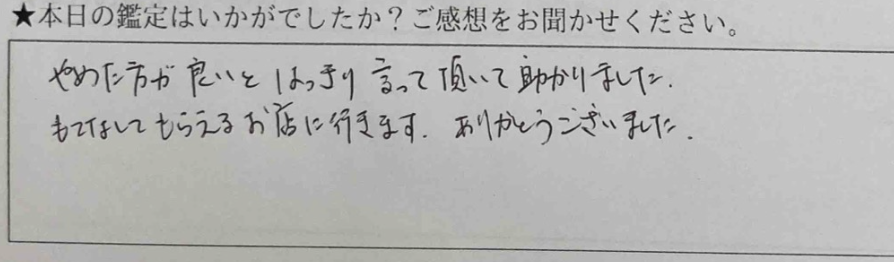 ★本日の鑑定はいかがでしたか？ご感想をお聞かせください。
やめた方が良いとはっきり言って頂いて助かりました.
もてなしてもらえるお店に行きます. ありがとうございました.